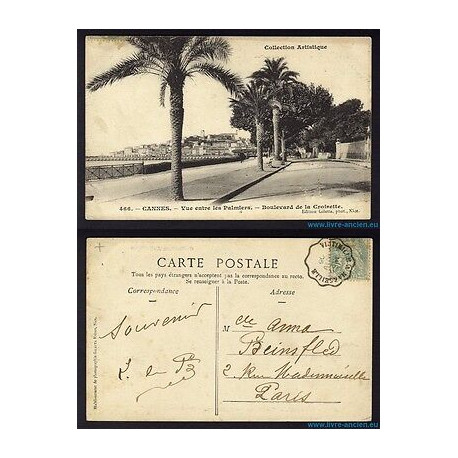 Collection Artistique
466. — CANNES. — Vue entre les Palmiers. — Boulevard de la Croisette.
Edition Giletta, phot., Nice.
www.livre-ancien.eu
CARTE POSTALE
Tous les pays étrangers n'acceptent pas la correspondance au recto.
Se renseigner à la Poste.
Correspondance
Adresse
Souvenir
M elle Anna
Beinsfled
2 Rue Mademoiselle
Paris
www.livre-ancien.eu